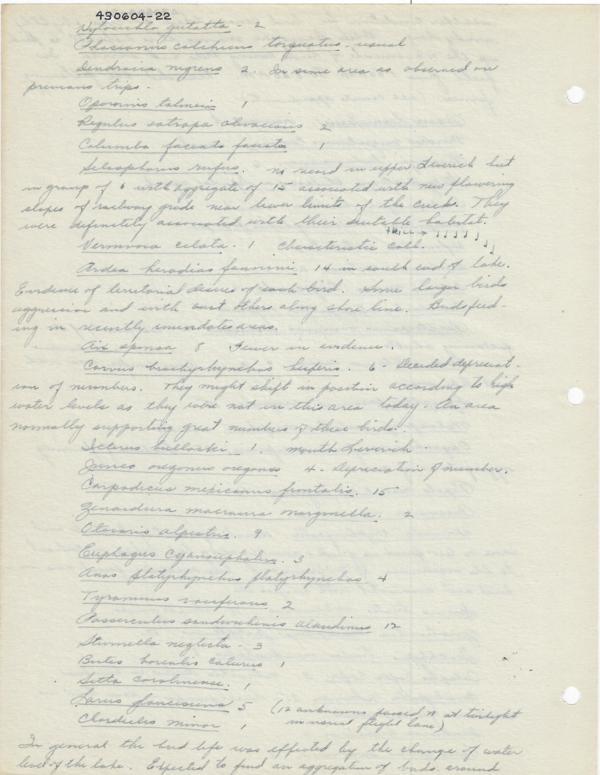 490604-22
Hylocichla guttata - 2
Phasianus colchicus torquatus - usual
Dendroica nigrens 2. In same area as observed on
previous trips.
Oporornis tolmiei 1
Regulus satrapa olivaceous 2
Columba fasciata fasciata 1
Selasphorus rufus. no heard in upper but
in group of 6 with aggregate of 15 associated with new flowering
slopes of railway grade near lower limits of the creek. They
were definitely associated with their suitable habitat.
Vermivora celata. 1 characteristic call.
Ardea herodias fannini, 14 in south end of lake.
Evidence of territorial desires of each bird. Some larger birds
aggression and with others along shore line. Birds feed-
ing in recently inundated areas.
Aix sponsa 8 Fewer in evidence.
Corvus brachyrhynchos hesperis. 6 - Decided depreciat-
ion of numbers. They might shift in position according to high
water levels as they were not in this area today. An area
normally supporting great numbers of these birds.
Icterus bullockii 1. mouth
Junco oreganus oreganus 4 - Depreciation of number.
Carpodacus mexicanus frontalis. 15
Zenaidura macroura marginella. 2
Otocoris alpestris. 9
Euphagus cyanocephalus. 3
Anas platyrhynchos platyrhynchos 4
Tyrannus vociferans 2
Passerculus sandwichensis alaudinus 12
Sturnella neglecta - 3
Buteo borealis calurus 1
Sitta carolinensis. 1
Larus 5 (12 unknowns passed N at twilight
in usual flight lane)
Chordeiles minor 1
In general the bird life was effected by the change of water
level of the lake. Expected to find an aggregation of birds around